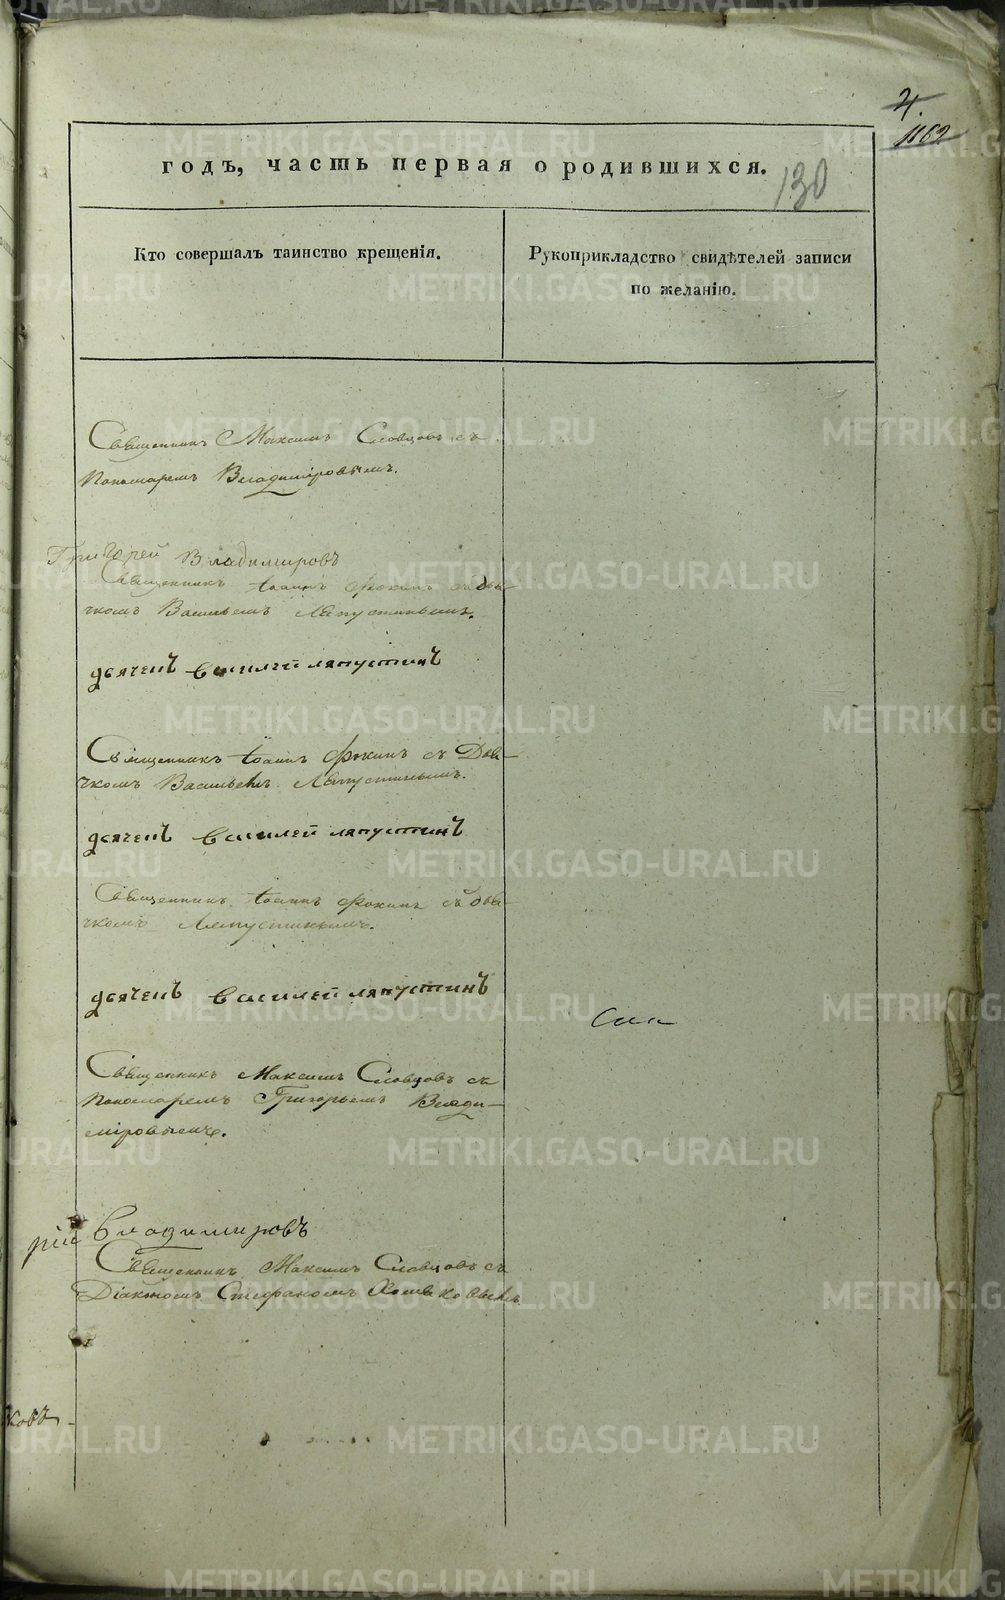 4.
1162
годъ, часть первая о родившихся.
130
Кто совершалъ таинство крещенія.
Рукоприкладство свидѣтелей записи
по желанію.
Священникъ Максимъ Словцовъ съ
Пономаремъ Владиміровымъ.
Григорей Владимировъ
Священникъ Іоаннъ Фокинъ съ дья-
чкомъ Васильемъ Ляпустинымъ.
дьячепъ василей ляпустинъ
Священникъ Іоаннъ Фокинъ съ Дья-
чкомъ Васильемъ Ляпустинымъ.
дьячепъ василей ляпустинъ
Священникъ Іоаннъ Фокинъ съ дья-
чкомъ Ляпустинымъ.
дьячепъ василей ляпустинъ
Священникъ Максимъ Словцовъ съ
Пономаремъ Григорьемъ Влади-
міровымъ.
рій Владимировъ
Священникъ Максимъ Словцовъ съ
Діакономъ Стефаномъ Хомяковымъ
ковъ
METRIKI.GASO-URAL.RU